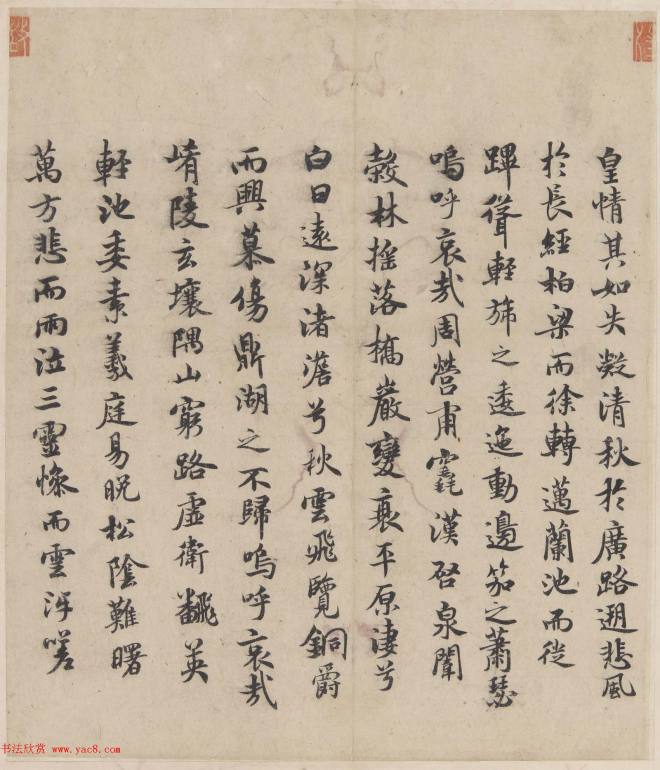 皇情其如失清秋於廣路遡悲風
於長經柏梁而徐轉邁蘭池而徙
蹕聳輕旆之逶迤動邊笳之蕭瑟
嗚呼哀哉周營甫竁漢啓泉闈
穀林搖落橋巖變衰平原淒兮
白日遠深渚澹兮秋雲飛覽銅爵
而興慕傷鼎湖之不歸嗚呼哀哉
崤陵玄壤隅山窮路虛衛飜英
輕池委素羲庭易晚松陰難曙
萬方悲而雨泣三靈慘而雲泝嗟
书法欣赏 www.yac8.com